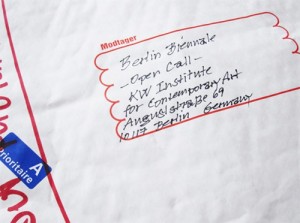 Modtager
Berlin Biennale
- Open Call -
KW Institute
for Contemporary Art
Auguststraße 69
10117 Berlin Germany
A
Prioritaire